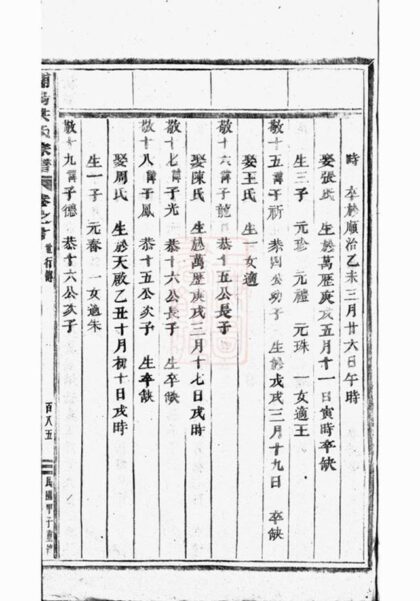 時　卒於順治乙未三月廿六日午時
娶張氏　生於萬歷庚戌五月十一日寅時卒缺
生三子　元珍　元禮　元珠　一女適王
敬十五諱子新　恭四公幼子　生於戊戌三月十九日　卒缺
娶王氏　生一女適
敬十六諱子龍　恭十五公長子
娶陳氏　生於萬歷庚戌三月十七日戌時
敬十七諱子光　恭十六公長子　生卒缺
敬十八諱子鳳　恭十五公次子　生卒缺
娶周氏　生於天啟乙丑十月初十日戌時
生一子　元春　一女適朱
敬十九諱子德　恭十六公次子
氏宗譜　卷之　行傳　百八五　民國甲子重修